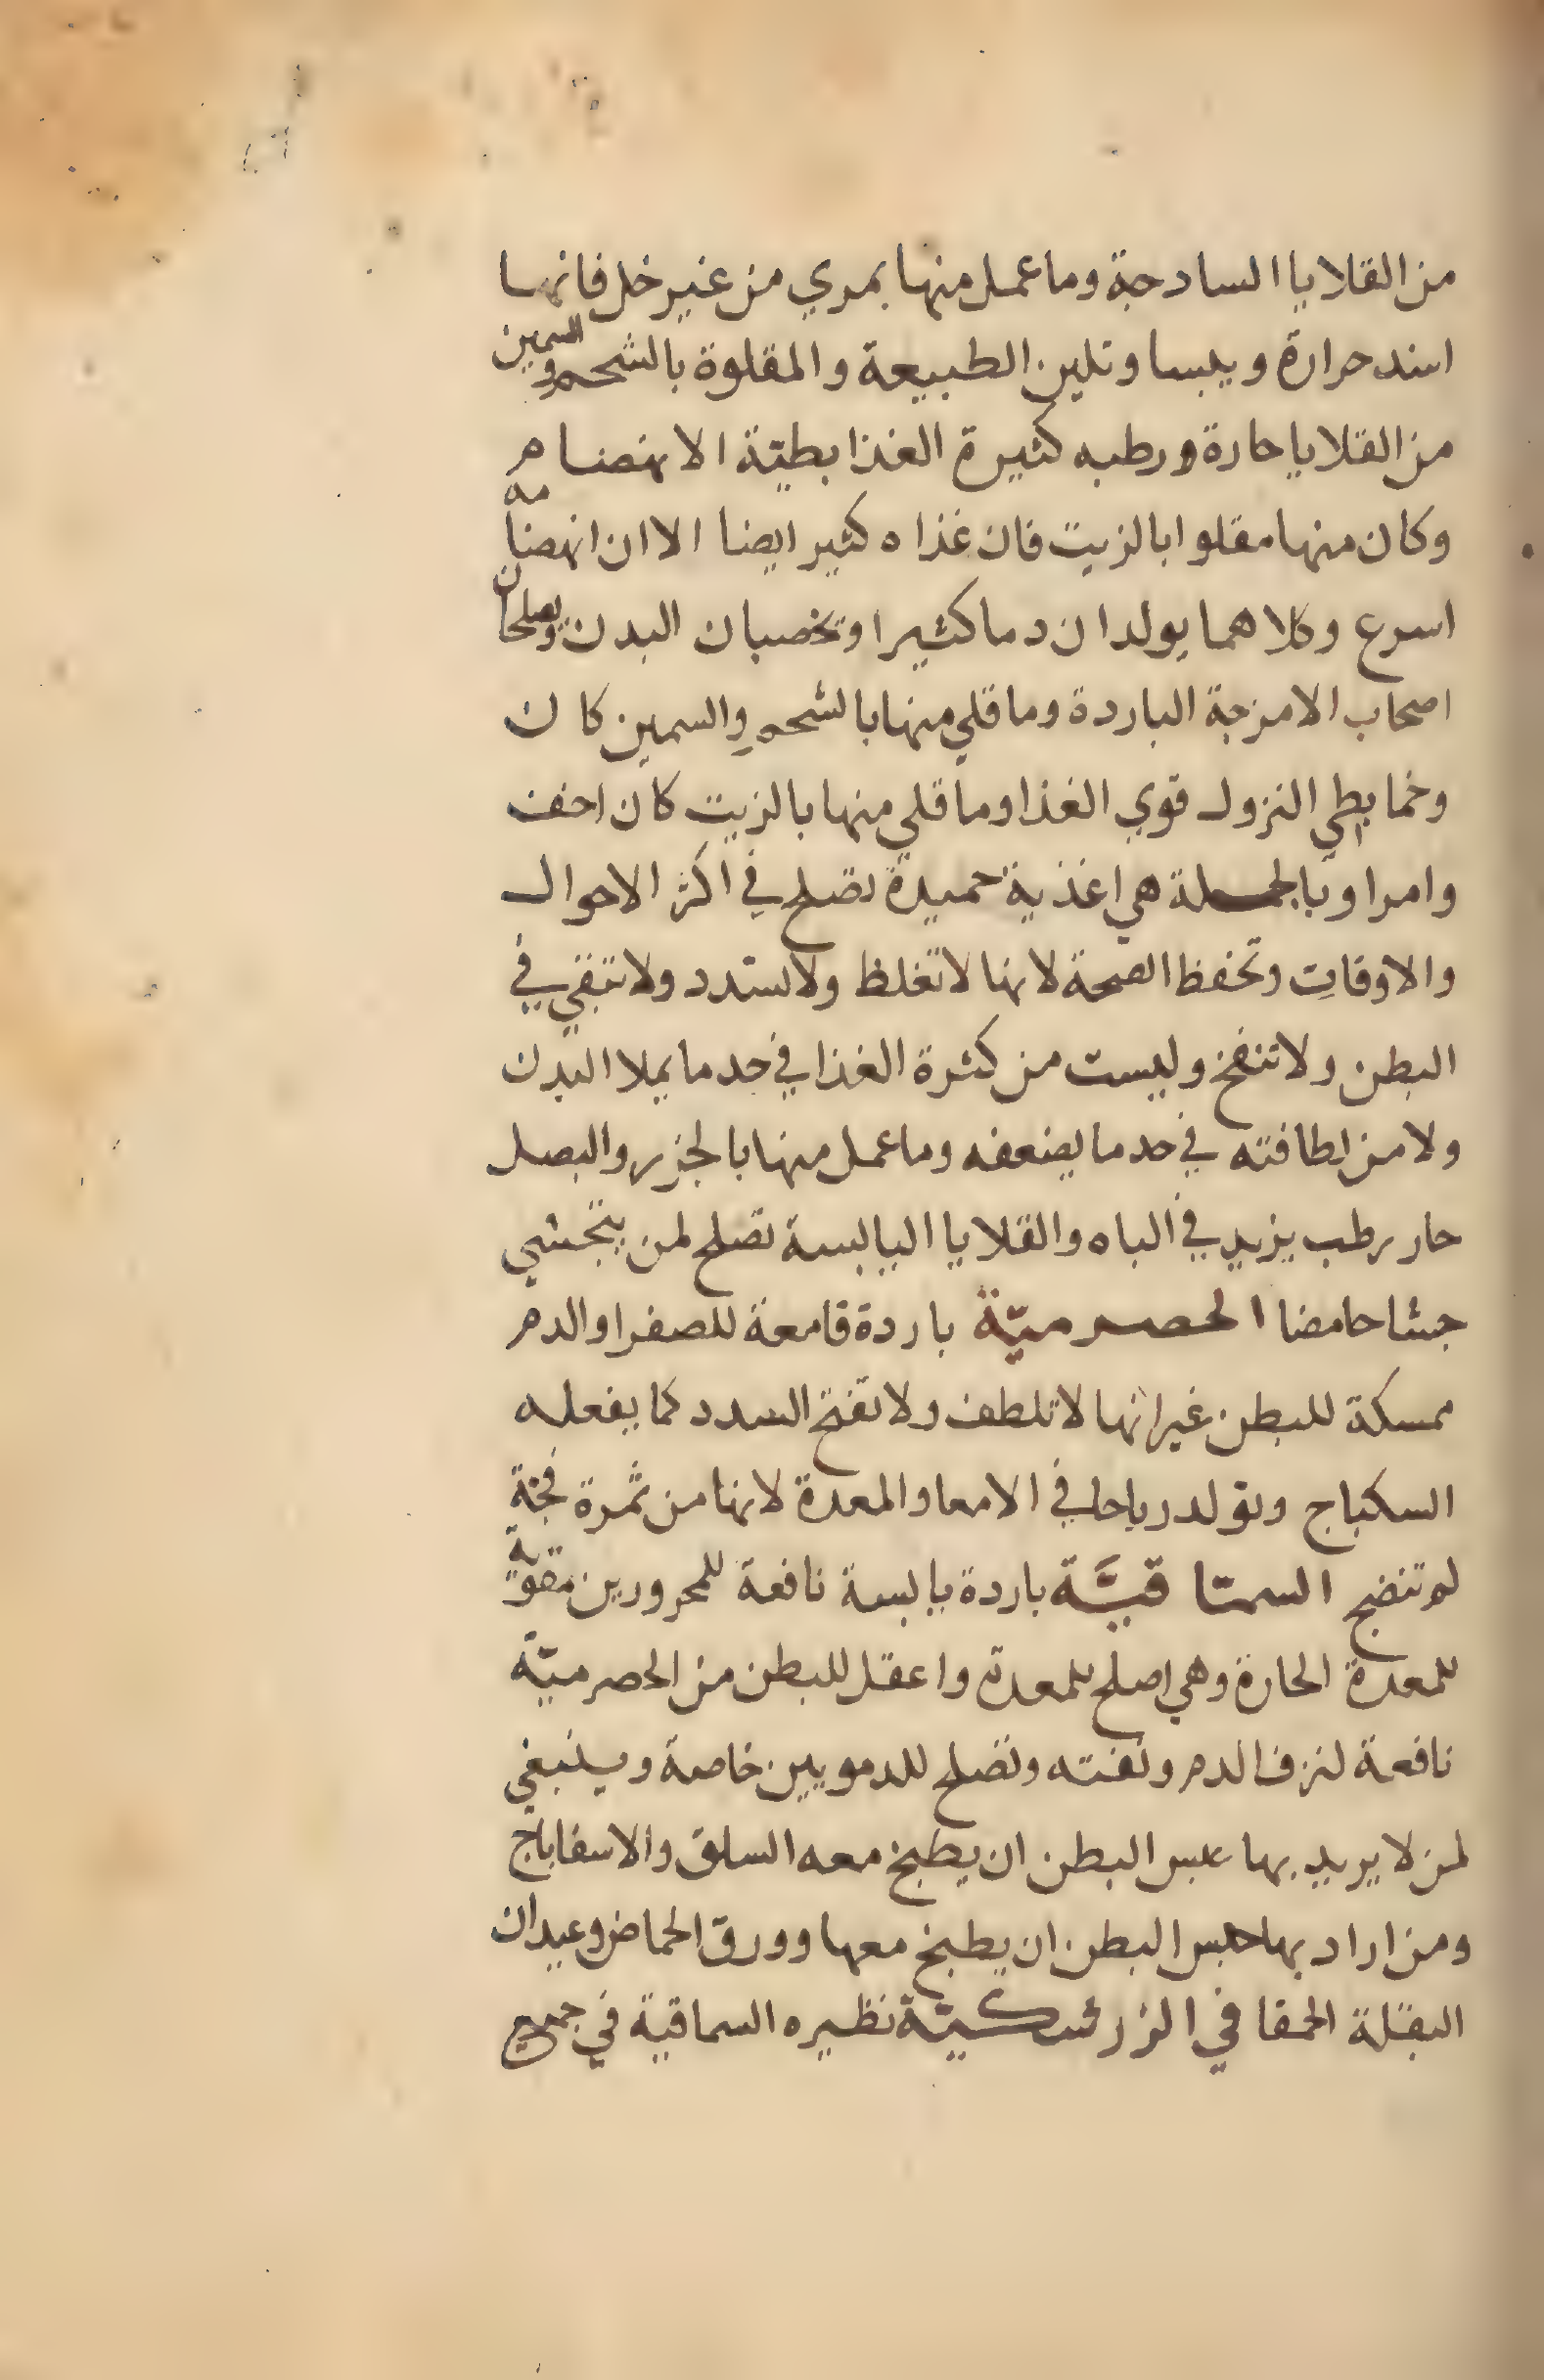 من القلايا السادجة وما عمل منها بمري من غير خل فانها
اشد حرارة ويبسا وتلين الطبيعة والمقلوة بالشحم والسمين
من القلايا حارة ورطبه كثيرة الغذا بطيّة الانهضام
وكان منها مقلوا بالزيت فان غذاه كثير ايضا الا ان انهضامه
اسرع وكلاهما يولدان دما كثيرا وتخصبان البدن ويصلحان
اصحاب الامزجة الباردة وما قلي منها بالشحم والسمين كان
وخما بطي النزول قوي الغذا وما قلي منها بالزيت كان اخف
وامرا وبالجملة هي اغذية حميدة تصلح في اكثر الاحوال
والاوقات وتحفظ الصحة لانها لا تغلظ ولا تسدد ولا تبقي في
البطن ولا تنفخ وليست من كثرة الغذا في حد ما يملا البدن
ولا من لطافته في حد ما يضعفه وما عمل منها بالجزر والبصل
حار رطب يزيد في الباه والقلايا اليابسة تصلح لمن يتجشي
جشا حامضا الحصرميّة باردة قامعة للصفرا والدم
ممسكة للبطن غير انها لا تلطف ولا تفتح السدد كما يفعله
السكباج وتولد رياحا في الامعا والمعدة لانها من ثمرة فجة
لم تنضج السمّاقيَّة باردة يابسة نافعة للمحرورين مقوّية
للمعدة الحارة وهي اصلح للمعدة واعقل للبطن من الحصرميّة
نافعة لنزف الدم ونفثه وتصلح للدمويين خاصة وينبغي
لمن لا يريد بها حبس البطن ان يطبخ معه السلق والاسفاباج
ومن اراد بها حبس البطن ان يطبخ معها وورق الحماض وعيدان
البقلة الحمقا في الزرشكيّة نظيره السماقية في جميع